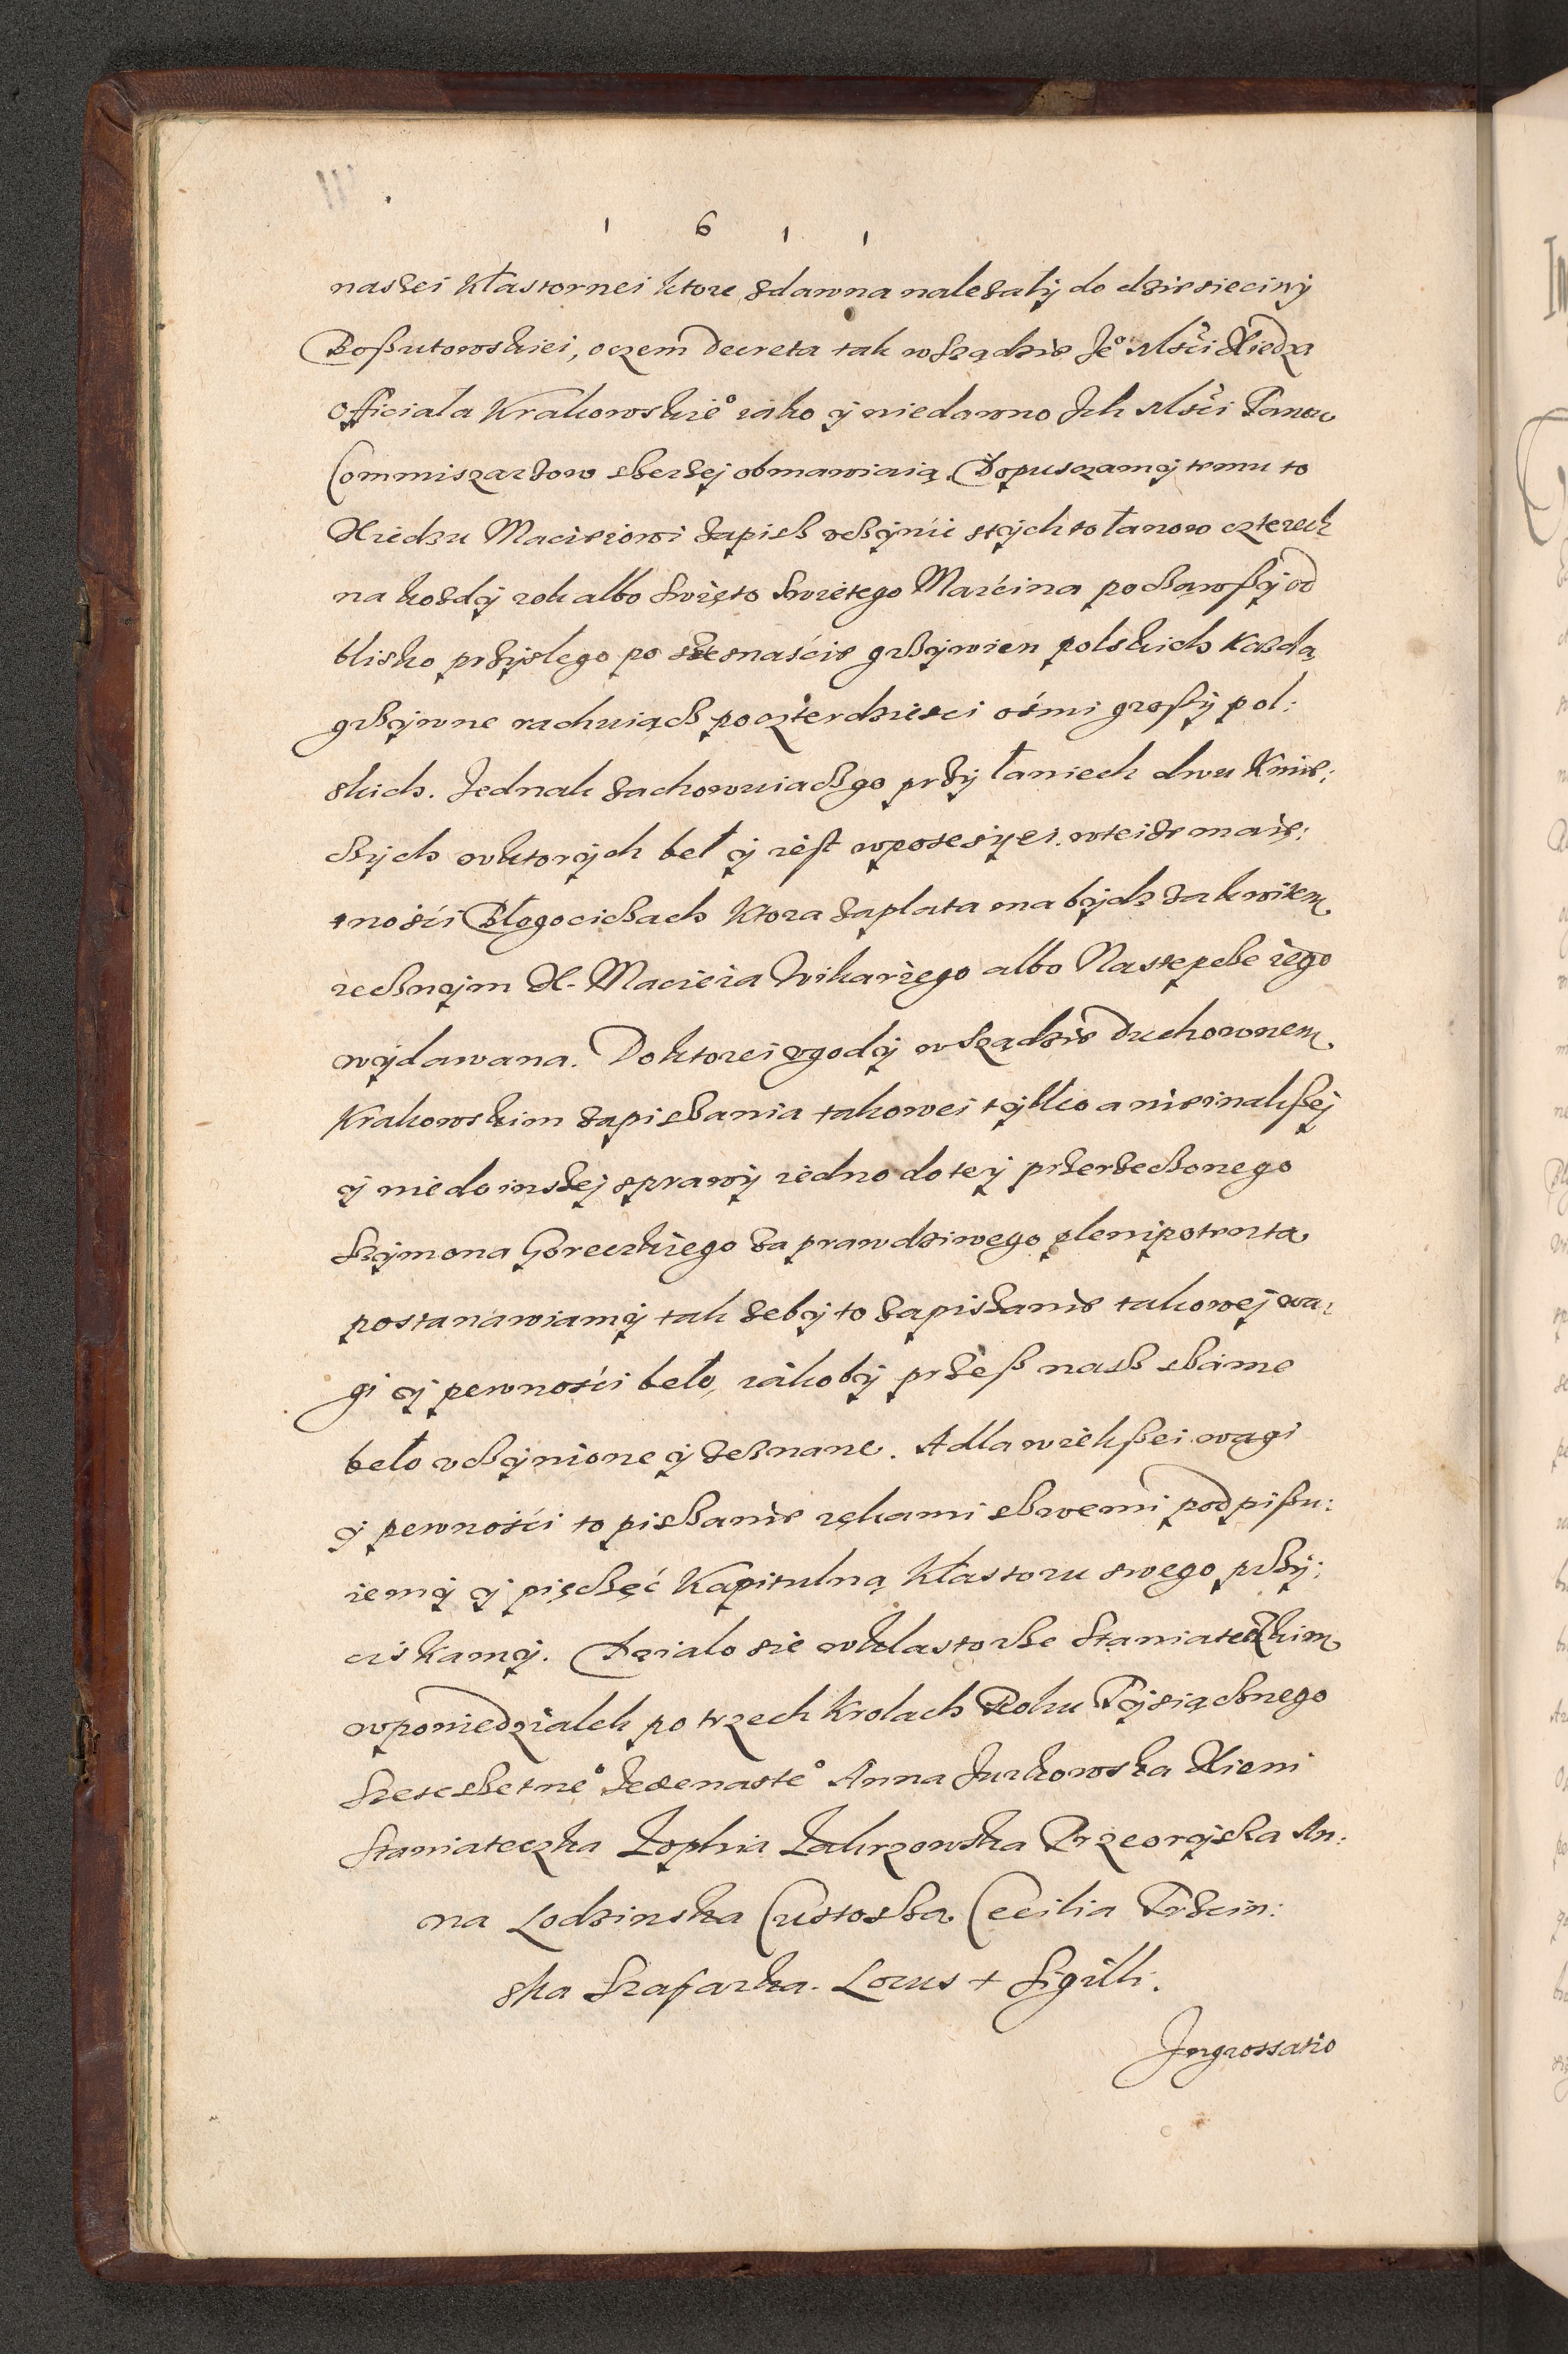 1 6 1 1
naszei Kłastornei ktore zdawna nalezały do dziesieciny
Boßutowskiei, oczem decreta tak wsządzie Je° Mści Xiedza
Officiala Krakowskie° iako y niedawno Ich Mści Panow
Commiszarzow szerzej obmawiaią. Dopuszamy temu to
Xiedzu Macieiowi zapisz vczynić stych to łanow czterech
na kożdy rok albo swięto swietego Marćina poczawßy od
blisko przyslego po szesnaście grzywien polskich Kazdą
grzywne rachuiącz po czterdziesci ośmi grosſy pol:
skich. Jednak zachowuiaczgo przy łaniech dwu Kmie:
czych wktorych beł y iest wposesyei. wteize maię:
tnośći Błogociczach Ktora zapłata ma bydz zakwitem
recznym X. Macieia Wikariego albo Nastepcze iego
wydawana. Do ktorei vgody wsządzie duchownem
Krakowskim zapiszania takowei tylko a nie inakßej
y nie do inszej sprawy iedno do tey przerzeczonego
Szymona Goreczkiego za prawdziwego plenipotenta
postanawiamy tak zeby to zapiszanie takowej wa:
gi y pewnośći beło, iakoby przeß nasz szame
beło vczynione y zeznane. A dla wiekßei wagi
y pewnośći to piszanie rękami szwemi podpißu:
iemy y pięczęć Kapitulną Kłastoru swego przy:
ciskamy. Dzialo sie wklastorze Staniateczkim
wponiedzialek po trzech Krolach Roku Tysiącznego
Szescsetne° Jedenaste° Anna Jurkowska Xieni
Staniateczka Zophia Zakrzowska Przeorysza An:
na Lodzinska Custosza Cecilia Trzcin:
ska Szafarka. Locus + Sigilli.
Ingrossatio